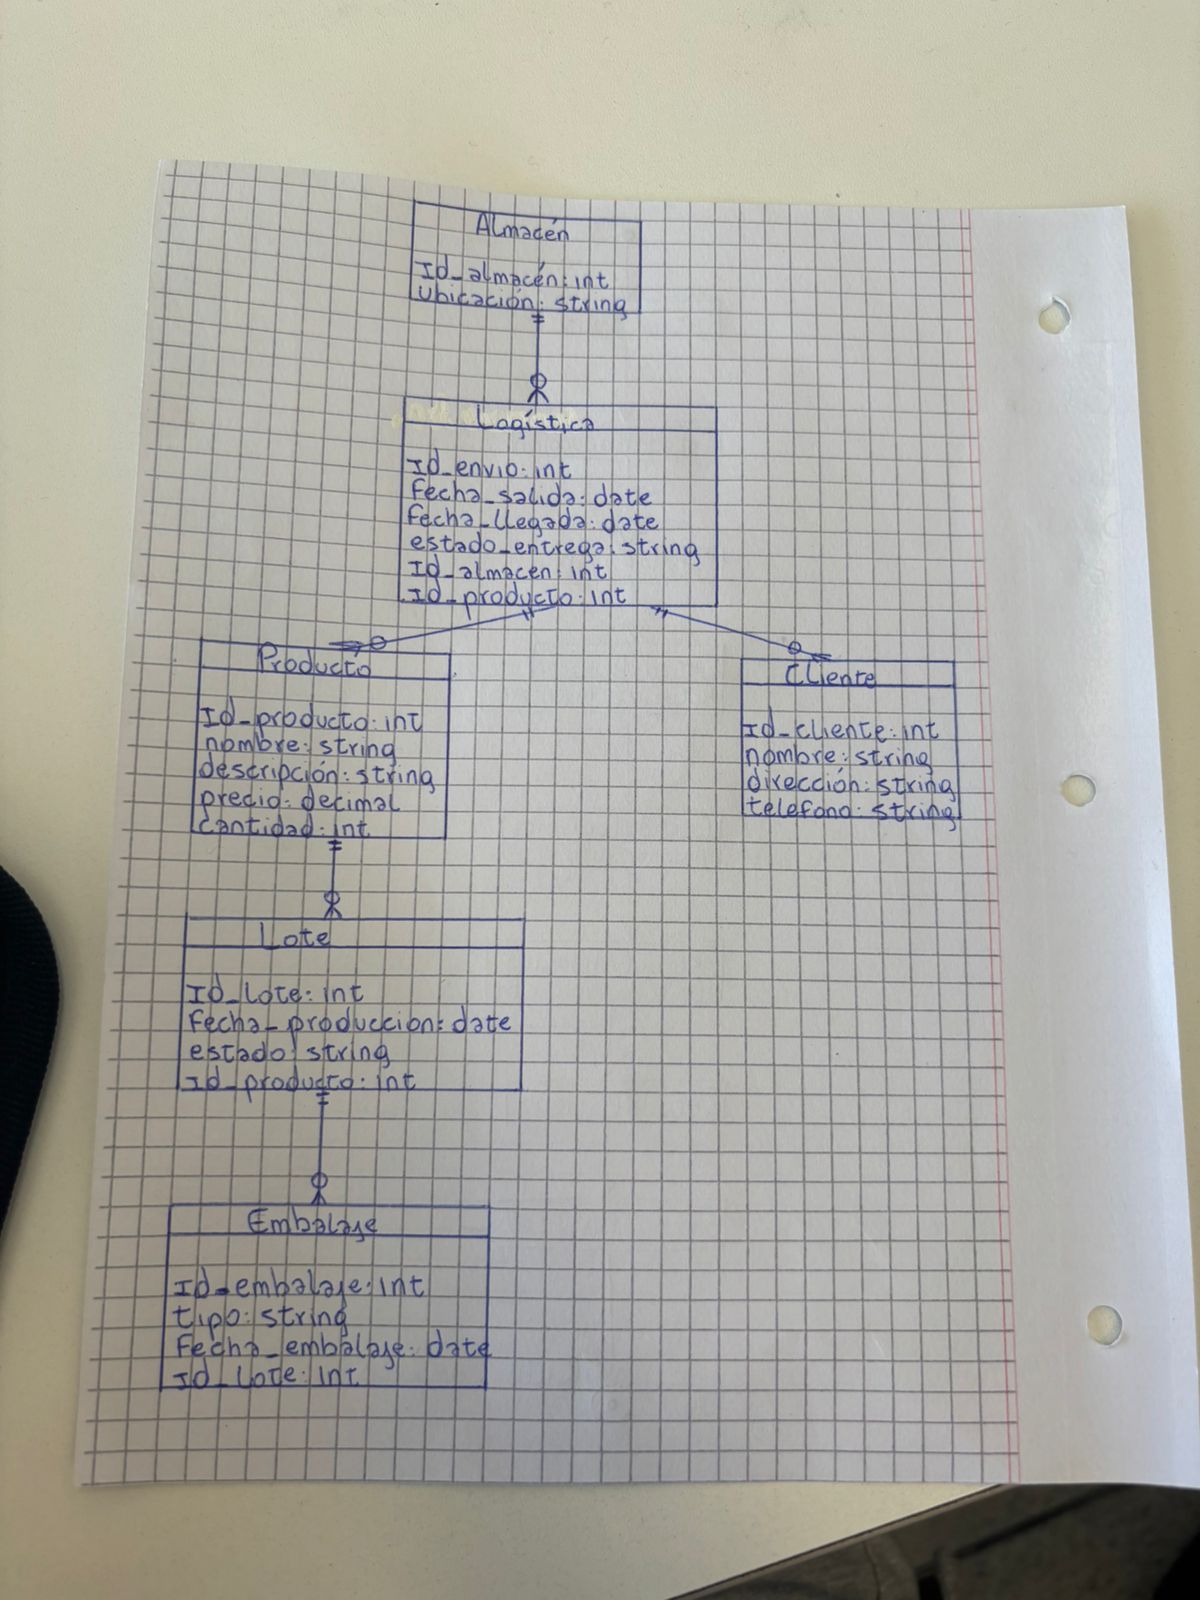 Almacén
Id_almacén: int
ubicación: string
Logística
Id_envio: int
Fecha_salida: date
Fecha_llegada: date
estado_entrega: string
Id_almacen: int
Id_producto: int
Producto
Id_producto: int
nombre: string
descripción: string
precio: decimal
cantidad: int
Cliente
Id_cliente: int
nombre: string
dirección: string
teléfono: string
Lote
Id_lote: int
Fecha_produccion: date
estado: string
Id_producto: int
Embalaje
Id_embalaje: int
tipo: string
Fecha_embalaje: date
Id_lote: int